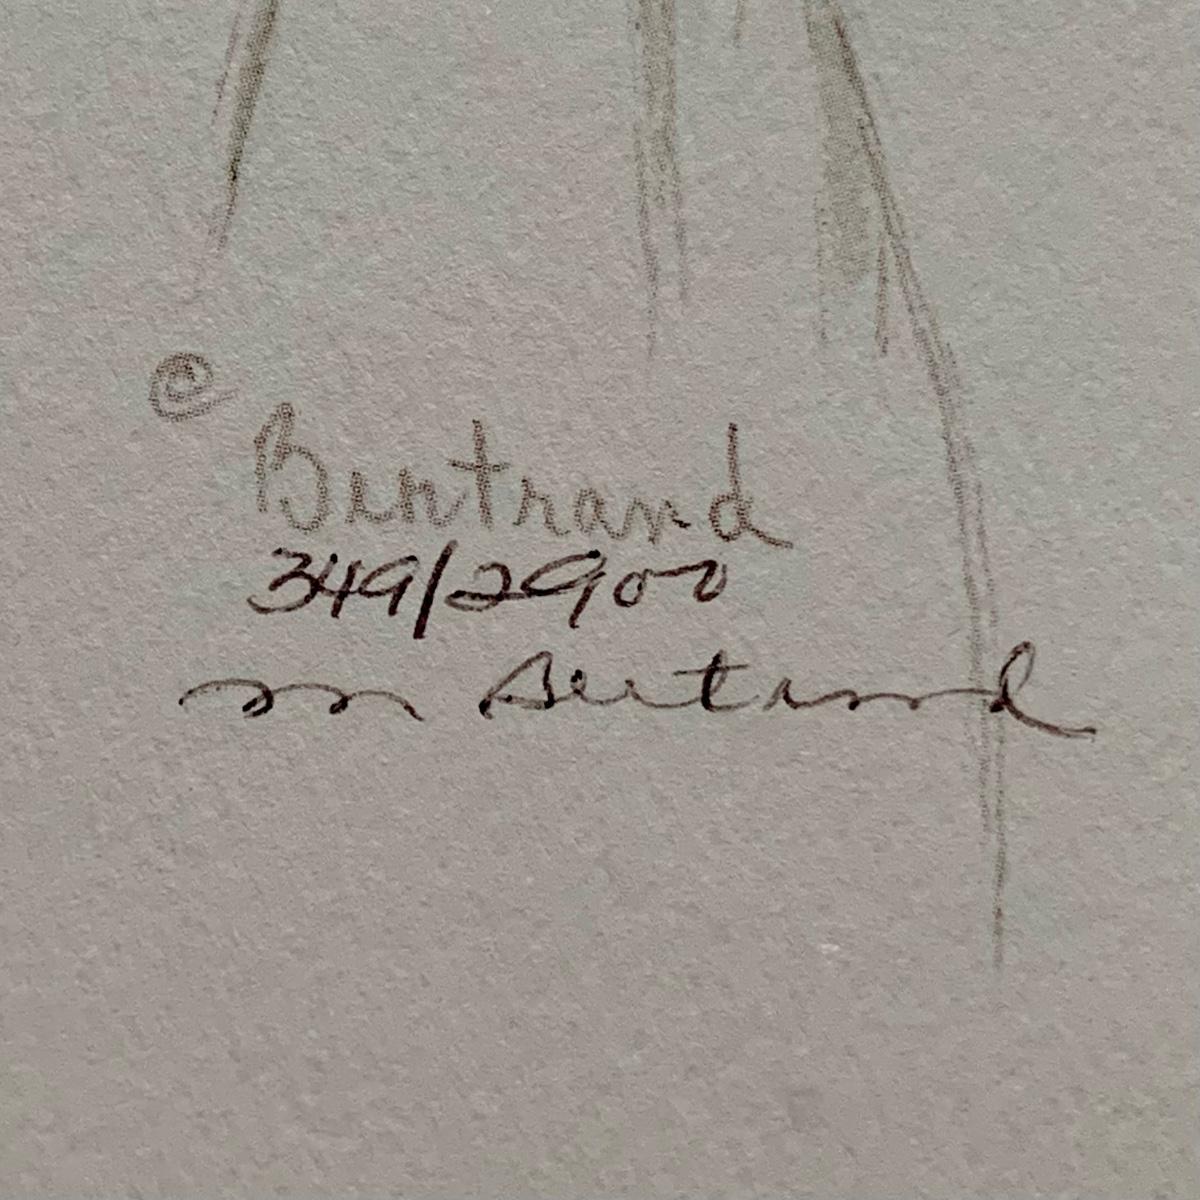 ©
Bertrand
349/2900
m Bertrand